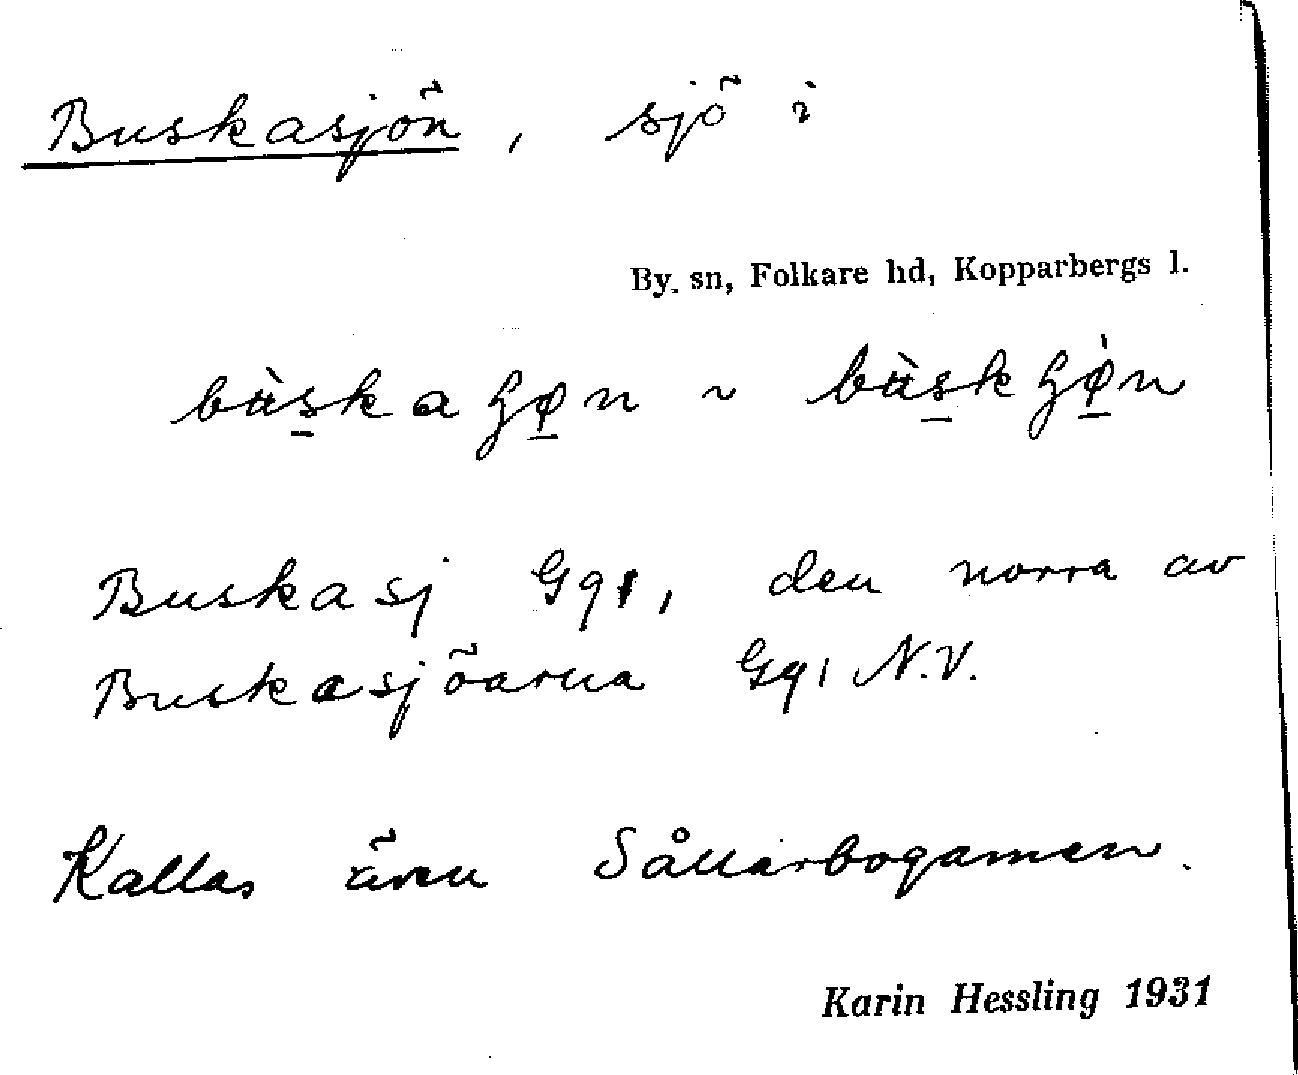 Buskasjön, sjö i
By. sn, Folkare hd, Kopparbergs l.
Buskasj Gq1, den norra av
Buskasjöarna Gq1 N.V.
Kallas även Sållarbogamen.
Karin Hessling 1931